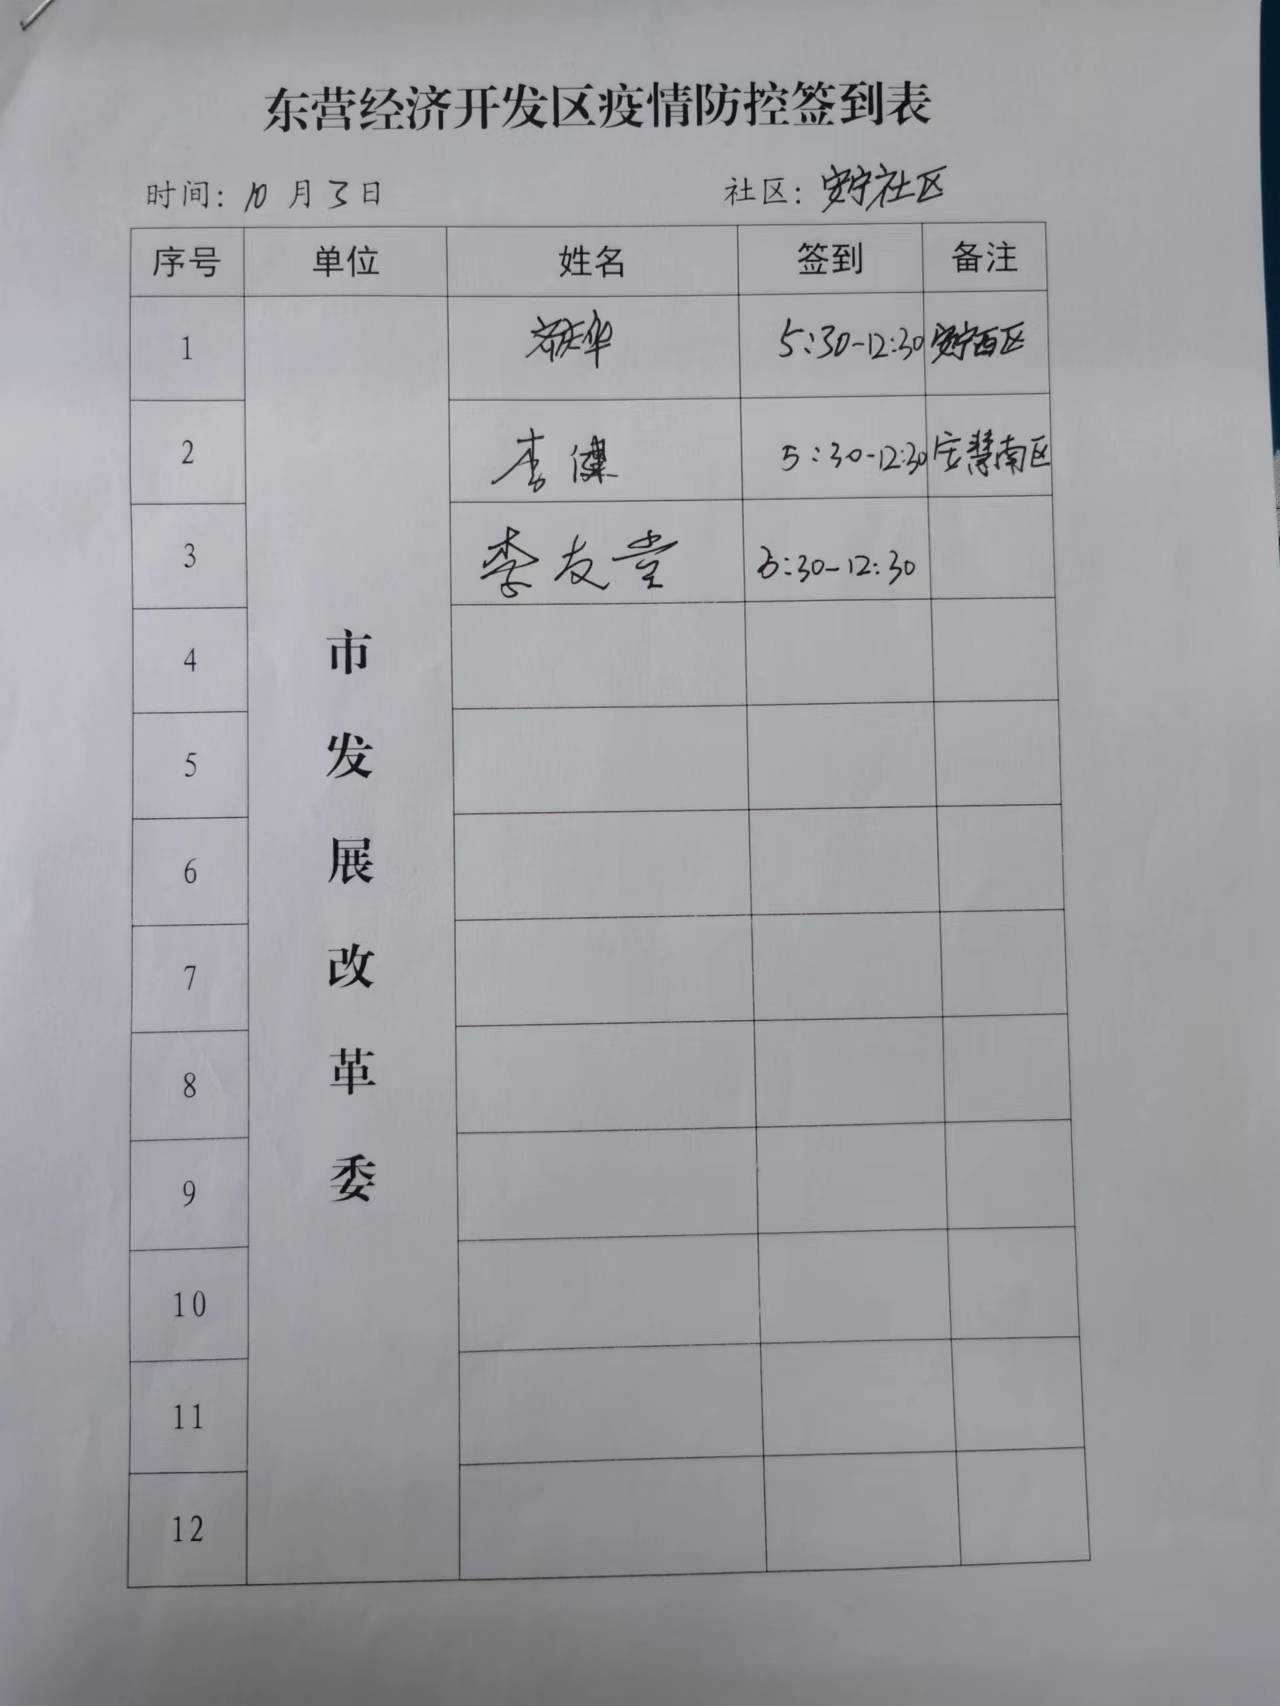 东营经济开发区疫情防控签到表
时间：10月3日 社区：安宁社区
序号 单位 姓名 签到 备注
1 5:30-12:30 安宁西区
2 李健 5:30-12:30 安慧南区
3 李友堂 5:30-12:30
4
5
6
7
8
9
10
11
12
市发展改革委